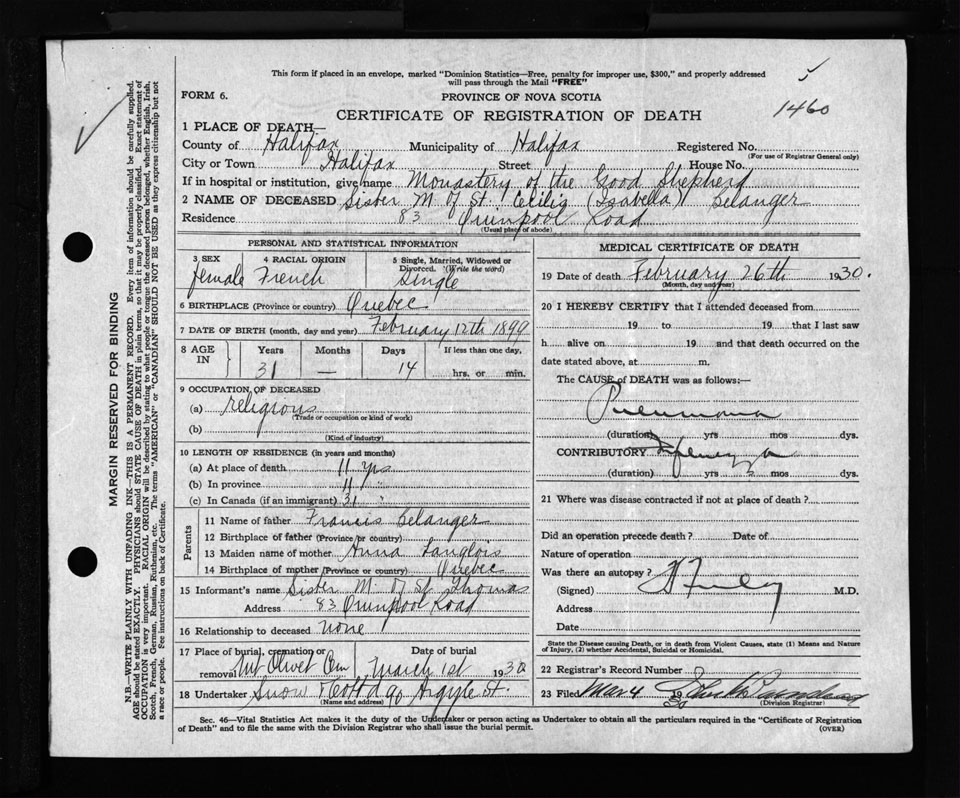 This form if placed in an envelope, marked "Dominion Statistics—Free, penalty for improper use, $300," and properly addressed
will pass through the Mail "FREE"
FORM 6.
PROVINCE OF NOVA SCOTIA
1460
CERTIFICATE OF REGISTRATION OF DEATH
1 PLACE OF DEATH—
County of Halifax Municipality of Halifax Registered No.
(For use of Registrar General only)
City or Town Halifax Street House No.
If in hospital or institution, give name Monastery of the Good Shepherd
2 NAME OF DECEASED Sister M. of St. Cecilia (Isabella) Belanger
Residence 83 Quinpool Road
(Usual place of abode)
PERSONAL AND STATISTICAL INFORMATION
3 SEX 4 RACIAL ORIGIN 5 Single, Married, Widowed or
Divorced. (Write the word)
female French Single
6 BIRTHPLACE (Province or country) Quebec
7 DATE OF BIRTH (month, day and year) February 12th 1899
8 AGE IN Years Months Days If less than one day,
31 — 14 hrs. or min.
9 OCCUPATION OF DECEASED
(a) religious
(Trade or occupation or kind of work)
(b)
(Kind of industry)
10 LENGTH OF RESIDENCE (in years and months)
(a) At place of death 11 yrs
(b) In province 11 "
(c) In Canada (if an immigrant) 31 "
Parents
11 Name of father Francis Belanger
12 Birthplace of father (Province or country)
13 Maiden name of mother Anna Langlois
14 Birthplace of mother (Province or country) Quebec
15 Informant's name Sister M. of St. Thomas
Address 83 Quinpool Road
16 Relationship to deceased none
17 Place of burial, cremation or Date of burial
removal Mt Olivet Cem March 1st 1930
18 Undertaker Snow & Co Ltd 90 Argyle St.
(Name and address)
MEDICAL CERTIFICATE OF DEATH
19 Date of death February 26th 1930.
(Month, day and year)
20 I HEREBY CERTIFY that I attended deceased from
19 to 19 that I last saw
h alive on 19 and that death occurred on the
date stated above, at m.
The CAUSE of DEATH was as follows:—
Pneumonia
(duration) yrs mos dys.
CONTRIBUTORY Influenza
(duration) yrs mos dys.
21 Where was disease contracted if not at place of death?
Did an operation precede death? Date of
Nature of operation
Was there an autopsy?
(Signed) M.D.
Address
Date
State the Disease causing Death, or in death from Violent Causes, state (1) Means and Nature
of Injury, (2) whether Accidental, Suicidal or Homicidal.
22 Registrar's Record Number
23 Filed Mar 4 1930
(Division Registrar)
Sec. 46—Vital Statistics Act makes it the duty of the Undertaker or person acting as Undertaker to obtain all the particulars required in the "Certificate of Registration
of Death" and to file the same with the Division Registrar who shall issue the burial permit.
(OVER)
MARGIN RESERVED FOR BINDING
N.B.—WRITE PLAINLY WITH UNFADING INK—THIS IS A PERMANENT RECORD. Every item of information should be carefully supplied.
AGE should be stated EXACTLY. PHYSICIANS should STATE CAUSE OF DEATH in plain terms, so that it may be properly classified. Exact statement of
OCCUPATION is very important. RACIAL ORIGIN will be described by stating to what people or tongue the deceased person belonged, whether English, Irish,
Scotch, French, German, Russian, Ruthenian, etc. The terms "AMERICAN" or "CANADIAN" SHOULD NOT BE USED as they express citizenship but not
a race or people. See instructions on back of Certificate.